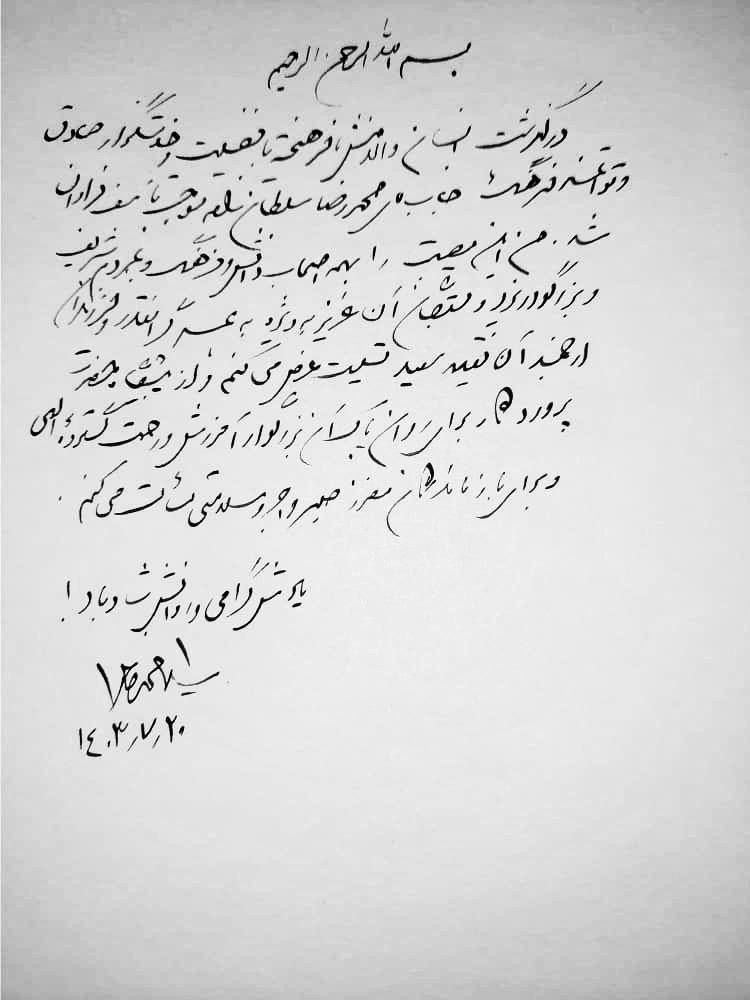 بسم الله الرحمن الرحیم
درگذشت انسان والامنش با فرهنگ با فضیلت و خدمتگزار صادق
و توانمند فرهنگ جناب آقای محمدرضا سلطان‌زاده موجب تأسف فراوان
شد. من این مصیبت را به همه اصحاب دانش و فرهنگ و به مردم شریف
و بزرگوار یزد و متعلقان آن عزیز به ویژه به همسر گرانقدر و فرزندان
ارجمند آن فقید سعید تسلیت عرض می کنم و از پیشگاه حضرت
پروردگار برای روان پاک آن بزرگوار آمرزش و رحمت گستردهٔ الهی
و برای بازماندگان معزز صبر و اجر و سلامتی مسألت می کنم.
یادش گرامی و روانش شاد باد!
سید محمد خاتمی
۱۴۰۳٫۷٫۲۰